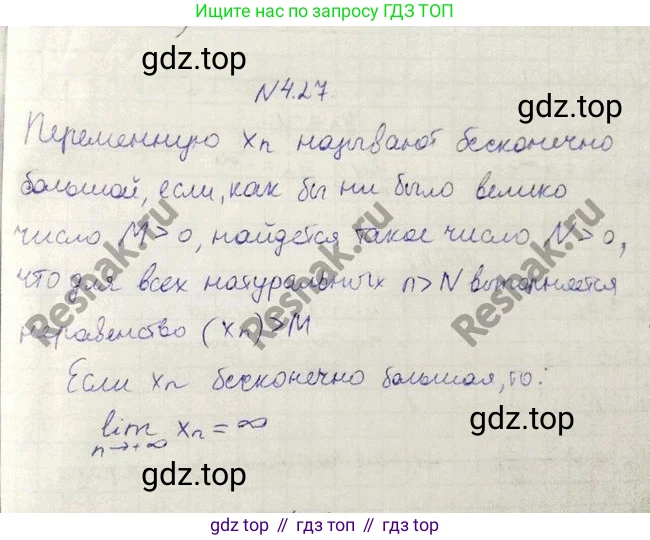 Ищите нас по запросу ГДЗ ТОП
gdz.top
N4.27.
gdz.top
Переменную xₙ называют бесконечно
большой, если, как бы ни было велико
число M>0, найдется такое число N>0,
что для всех натуральных n>N выполняется
неравенство (xₙ)>M
Reshak.ru
Reshak.ru
Reshak.ru
gdz.top
Если xₙ бесконечно большая, то:
gdz.top
lim xₙ = ∞
n→+∞
gdz.top
gdz.top // гдз топ // gdz.top